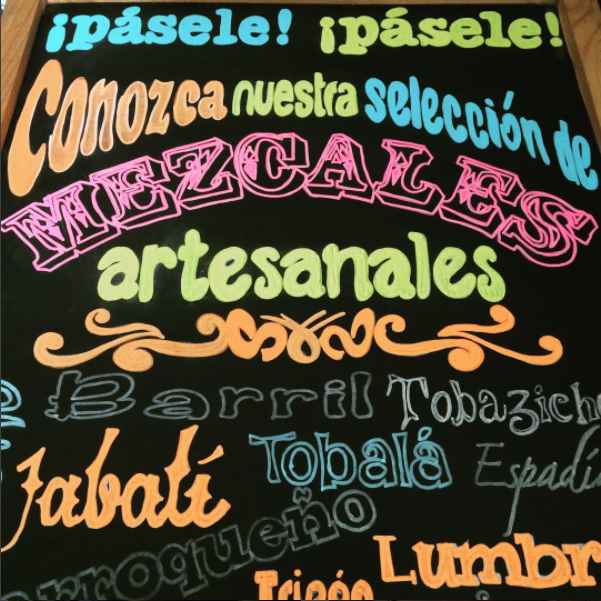 ¡pásele! ¡pásele!
Conozca nuestra selección de
MEZCALES
artesanales
Barril Tobaziche
Jabalí Tobalá Espadí
arroqueño Lumbr